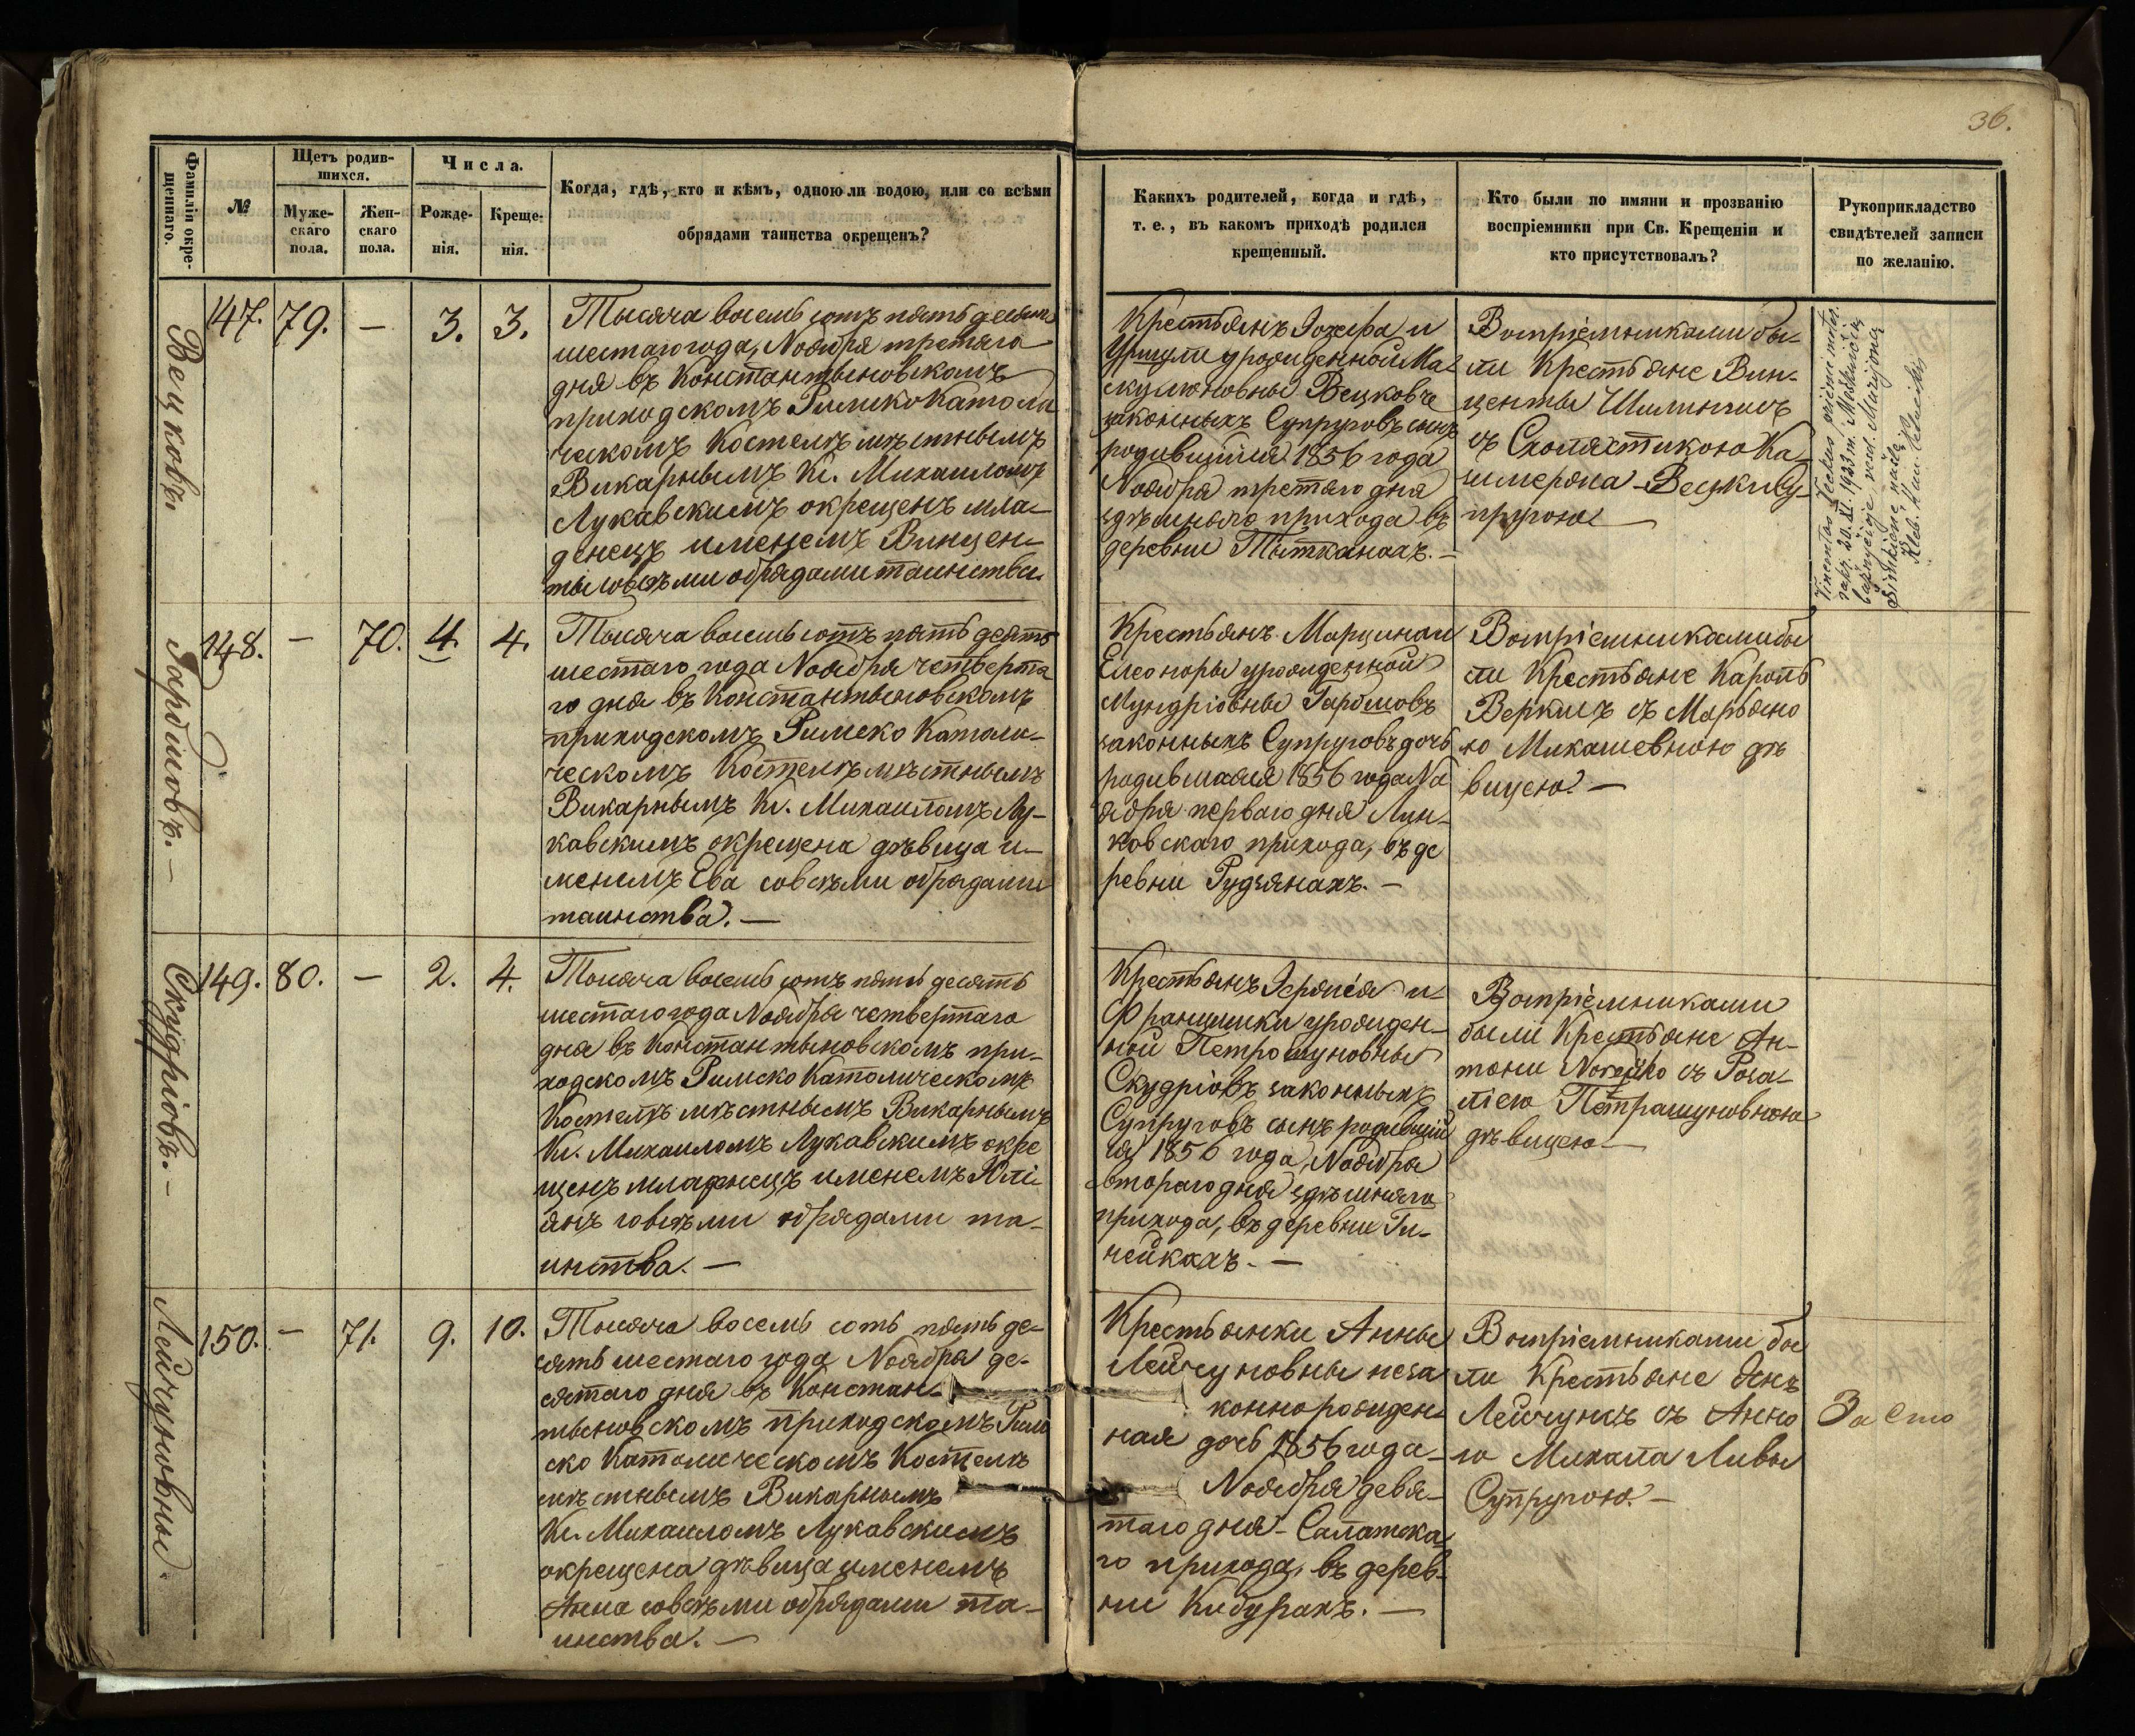 36.
Фамиліи окре-
щеннаго.
№
Щетъ родив-
шихся.
Муже-
скаго
пола.
Жен-
скаго
пола.
Числа.
Рожде-
нія.
Креще-
нія.
Когда, гдѣ, кто и кѣмъ, одною ли водою, или со всѣми
обрядами таинства окрещенъ?
Какихъ родителей, когда и гдѣ,
т. е., въ какомъ приходѣ родился
крещенный.
Кто были по имяни и прозванію
воспріемники при Св. Крещеніи и
кто присутствовалъ?
Рукоприкладство
свидѣтелей записи
по желанію.
Вецковъ.
147. 79. — 3. 3.
Тысяча восемь сотъ пять десятъ
шестаго года, Ноября третяго
дня въ Константыновскомъ
приходскомъ Римско Катали
ческомъ Костелѣ мѣстнымъ
Викарнымъ Кс. Михаиломъ
Лукавскимъ окрещенъ мла-
денецъ именемъ Винцен-
ты совсѣми обрядами таинства.
Крестьянъ Іозефа и
Уршули урожденной Ма-
скулюновны Вецковъ
законныхъ Супруговъ сынъ
родившійся 1856 года
Ноября третяго дня
здѣшняго прихода въ
деревни Тытканахъ. —
Воспріемниками бы-
ли Крестьяне Вин-
центы Шилингисъ
съ Схолястикою Ка-
зимержа Вецки Су-
пругою —
Vincentas Veckus priėmė mot.
sakr. 30. XI. 1933 m. Moškuičių
bažnyčioje vesd. Marijoną
Simkienę našlę
Klab.
Гарбшовъ. —
148. — 70. 4. 4.
Тысяча восемь сотъ пять десятъ
шестаго года Ноября четверта
го дня въ Константыновскомъ
приходскомъ Римско Катали-
ческомъ Костелѣ мѣстнымъ
Викарнымъ Кс. Михаиломъ Лу-
кавскимъ окрещена дѣвица и-
менемъ Ева совсѣми обрядами
таинства. —
Крестьянъ Марцина и
Елеоноры урожденной
Мундріовны Гарбшовъ
законныхъ Супруговъ дочь
родившаяся 1856 года Но
ября перваго дня Лин-
ковскаго прихода, въ де
ревни Гудзянахъ. —
Воспріемниками бы
ли Крестьяне Кароль
Веркисъ съ Марьяно
ю Микашевною дѣ
вицею. —
Скудріовъ. —
149. 80. — 2. 4.
Тысяча восемь сотъ пять десятъ
шестаго года Ноября четвертаго
дня въ Константыновскомъ при-
ходскомъ Римско Католическомъ
Костелѣ мѣстнымъ Викарнымъ
Кс. Михаиломъ Лукавскимъ окре
щенъ младенецъ именемъ Юлі
янъ совсѣми обрядами та-
инства. —
Крестьянъ и
Францишки урожден-
ной Петрошуновны
Скудріовъ законныхъ
Супруговъ сынъ родившій
ся 1856 года, Ноября
втораго дня здѣшняго
прихода, въ деревни Ги-
нейкахъ. —
Воспріемниками
были Крестьяне Ан-
тони Норейко съ Роза-
ліею Петрашуновною
дѣвицею —
Лейчуновны.
150. — 71. 9. 10.
Тысяча восемь сотъ пять де-
сятъ шестаго года Ноября де-
сятаго дня въ Констан-
тыновскомъ приходскомъ Рим
ско Католическомъ Костелѣ
мѣстнымъ Викарнымъ
Кс. Михаиломъ Лукавскимъ
окрещена дѣвица именемъ
Анна совсѣми обрядами та-
инства. —
Крестьянки Анны
Лейчуновны неза
коннорожден-
ная дочь 1856 года
Ноября девя-
таго дня Салатска
го прихода, въ дерев-
ни Кибурахъ. —
Воспріемниками бы
ли Крестьяне Янъ
Лейчунъ съ Анно
ю Михала Ливы
Супругою. —
За сто